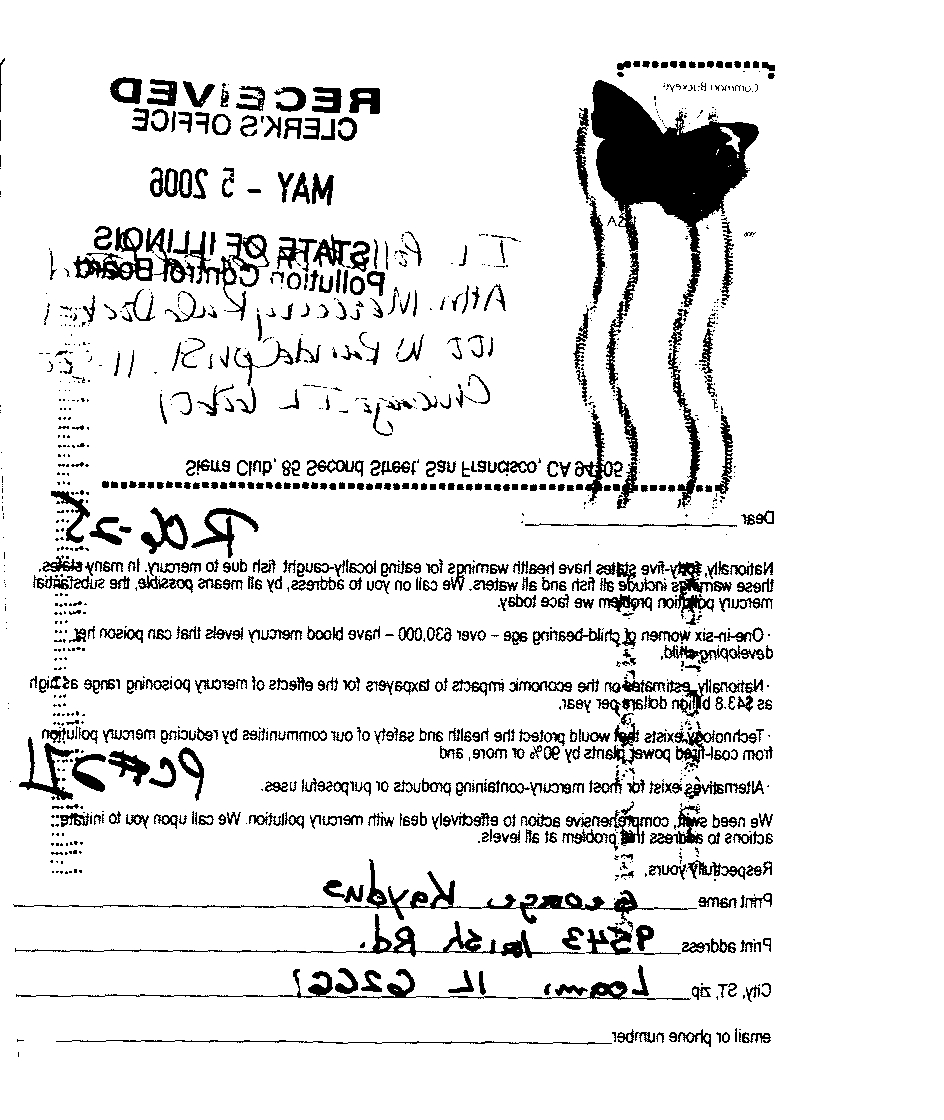 Common Buckeye
RECEIVED
CLERK'S OFFICE
MAY - 5 2006
STATE OF ILLINOIS
Pollution Control Board
IL Pollution
Attn: Mercury Rule Docket
100 W Randolph St. 11-500
Chicago IL 60601
Sierra Club, 85 Second Street, San Francisco, CA 94105
R06-25
Dear
Nationally, forty-five states have health warnings for eating locally-caught fish due to mercury. In many states,
these warnings include all fish and all waters. We call on you to address, by all means possible, the substantial
mercury pollution problem we face today.
· One-in-six women of child-bearing age – over 630,000 – have blood mercury levels that can poison her
developing child,
· Nationally, estimates on the economic impacts to taxpayers for the effects of mercury poisoning range as high
as $43.8 billion dollars per year,
· Technology exists that would protect the health and safety of our communities by reducing mercury pollution
from coal-fired power plants by 90% or more, and
PC#271
· Alternatives exist for most mercury-containing products or purposeful uses.
We need swift, comprehensive action to effectively deal with mercury pollution. We call upon you to initiate
actions to address this problem at all levels.
Respectfully yours,
Print name George Kaydus
Print address 9543 Irish Rd.
City, ST, zip Loami IL 62661
email or phone number